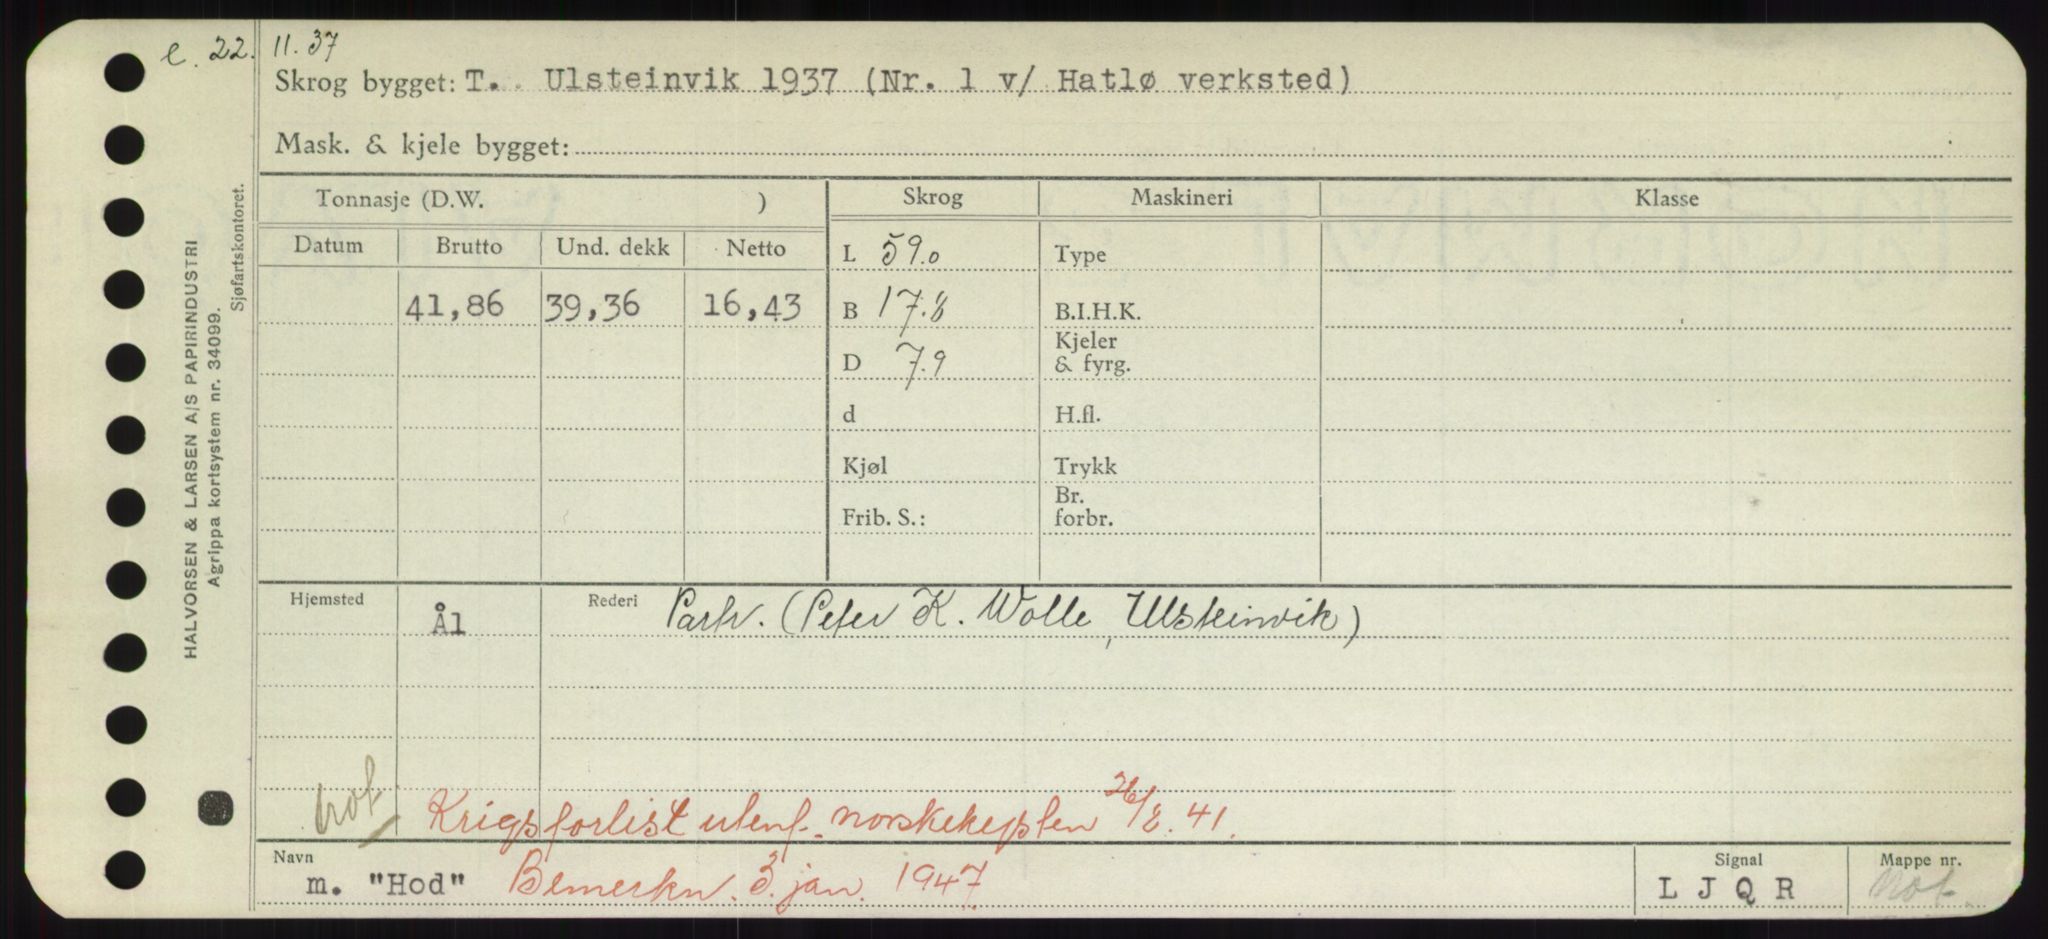 e. 22. 11. 37
Skrog bygget: T. Ulsteinvik 1937 (Nr. 1 v/ Hatlø verksted)
Mask. & kjele bygget:
Tonnasje (D.W. )
Skrog
Maskineri
Klasse
Datum Brutto Und. dekk Netto
41,86 39,36 16,43
L 59.0
B 17.8
D 7.9
d
Kjøl
Frib. S.:
Type
B.I.H.K.
Kjeler
& fyrg.
H.fl.
Trykk
Br.
forbr.
Hjemsted Ål
Rederi Partr. (Peter K. Wolle, Ulsteinvik)
not
Krigsforlist utenf. norskekysten 26/8. 41.
Navn
m. "Hod" Bemerkn. 3. jan. 1947.
Signal
L J Q R
Mappe nr.
not
HALVORSEN & LARSEN A/S PAPIRINDUSTRI
Agrippa kortsystem nr. 34099.
Sjøfartskontoret.